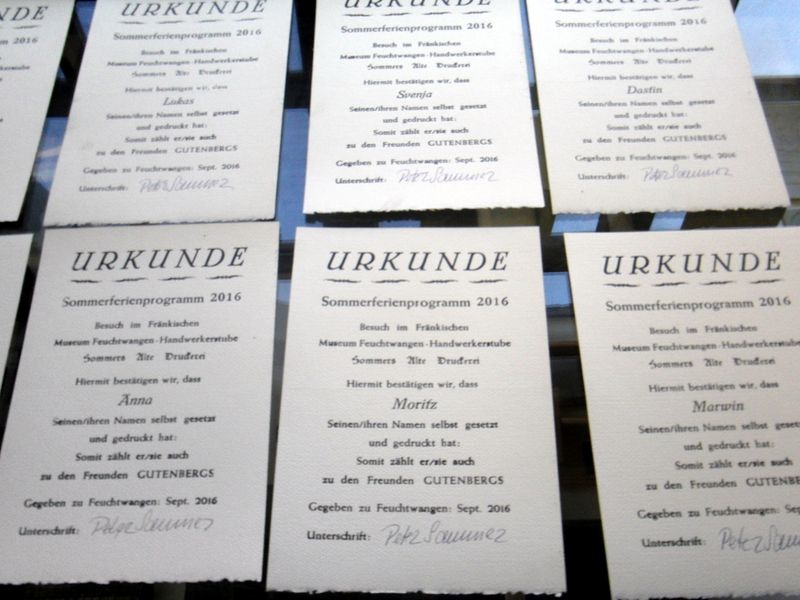 URKUNDE
2016
URKUNDE
Sommerferienprogramm 2016
Besuch im Fränkischen
Museum Feuchtwangen-Handwerkerstube
Sommers Alte Druckerei
Hiermit bestätigen wir, dass
Lukas
Seinen/ihren Namen selbst gesetzt
und gedruckt hat:
Somit zählt er/sie auch
zu den Freunden GUTENBERGS
Gegeben zu Feuchtwangen: Sept. 2016
Unterschrift: Peter Sommer
URKUNDE
Sommerferienprogramm 2016
Besuch im Fränkischen
Museum Feuchtwangen-Handwerkerstube
Sommers Alte Druckerei
Hiermit bestätigen wir, dass
Svenja
Seinen/ihren Namen selbst gesetzt
und gedruckt hat:
Somit zählt er/sie auch
zu den Freunden GUTENBERGS
Gegeben zu Feuchtwangen: Sept. 2016
Unterschrift: Peter Sommer
URKUNDE
Sommerferienprogramm 2016
Besuch im Fränkischen
Museum Feuchtwangen-Handwerkerstube
Sommers Alte Druckerei
Hiermit bestätigen wir, dass
Dastin
Seinen/ihren Namen selbst gesetzt
und gedruckt hat:
Somit zählt er/sie auch
zu den Freunden GUTENBERGS
Gegeben zu Feuchtwangen: Sept. 2016
Unterschrift: Peter Sommer
URKUNDE
Sommerferienprogramm 2016
Besuch im Fränkischen
Museum Feuchtwangen-Handwerkerstube
Sommers Alte Druckerei
Hiermit bestätigen wir, dass
Anna
Seinen/ihren Namen selbst gesetzt
und gedruckt hat:
Somit zählt er/sie auch
zu den Freunden GUTENBERGS
Gegeben zu Feuchtwangen: Sept. 2016
Unterschrift: Peter Sommer
URKUNDE
Sommerferienprogramm 2016
Besuch im Fränkischen
Museum Feuchtwangen-Handwerkerstube
Sommers Alte Druckerei
Hiermit bestätigen wir, dass
Moritz
Seinen/ihren Namen selbst gesetzt
und gedruckt hat:
Somit zählt er/sie auch
zu den Freunden GUTENBERGS
Gegeben zu Feuchtwangen: Sept. 2016
Unterschrift: Peter Sommer
URKUNDE
Sommerferienprogramm 2016
Besuch im Fränkischen
Museum Feuchtwangen-Handwerkerstube
Sommers Alte Druckerei
Hiermit bestätigen wir, dass
Marwin
Seinen/ihren Namen selbst gesetzt
und gedruckt hat:
Somit zählt er/sie auch
zu den Freunden GUTENBERGS
Gegeben zu Feuchtwangen: Sept. 2016
Unterschrift: Peter Som